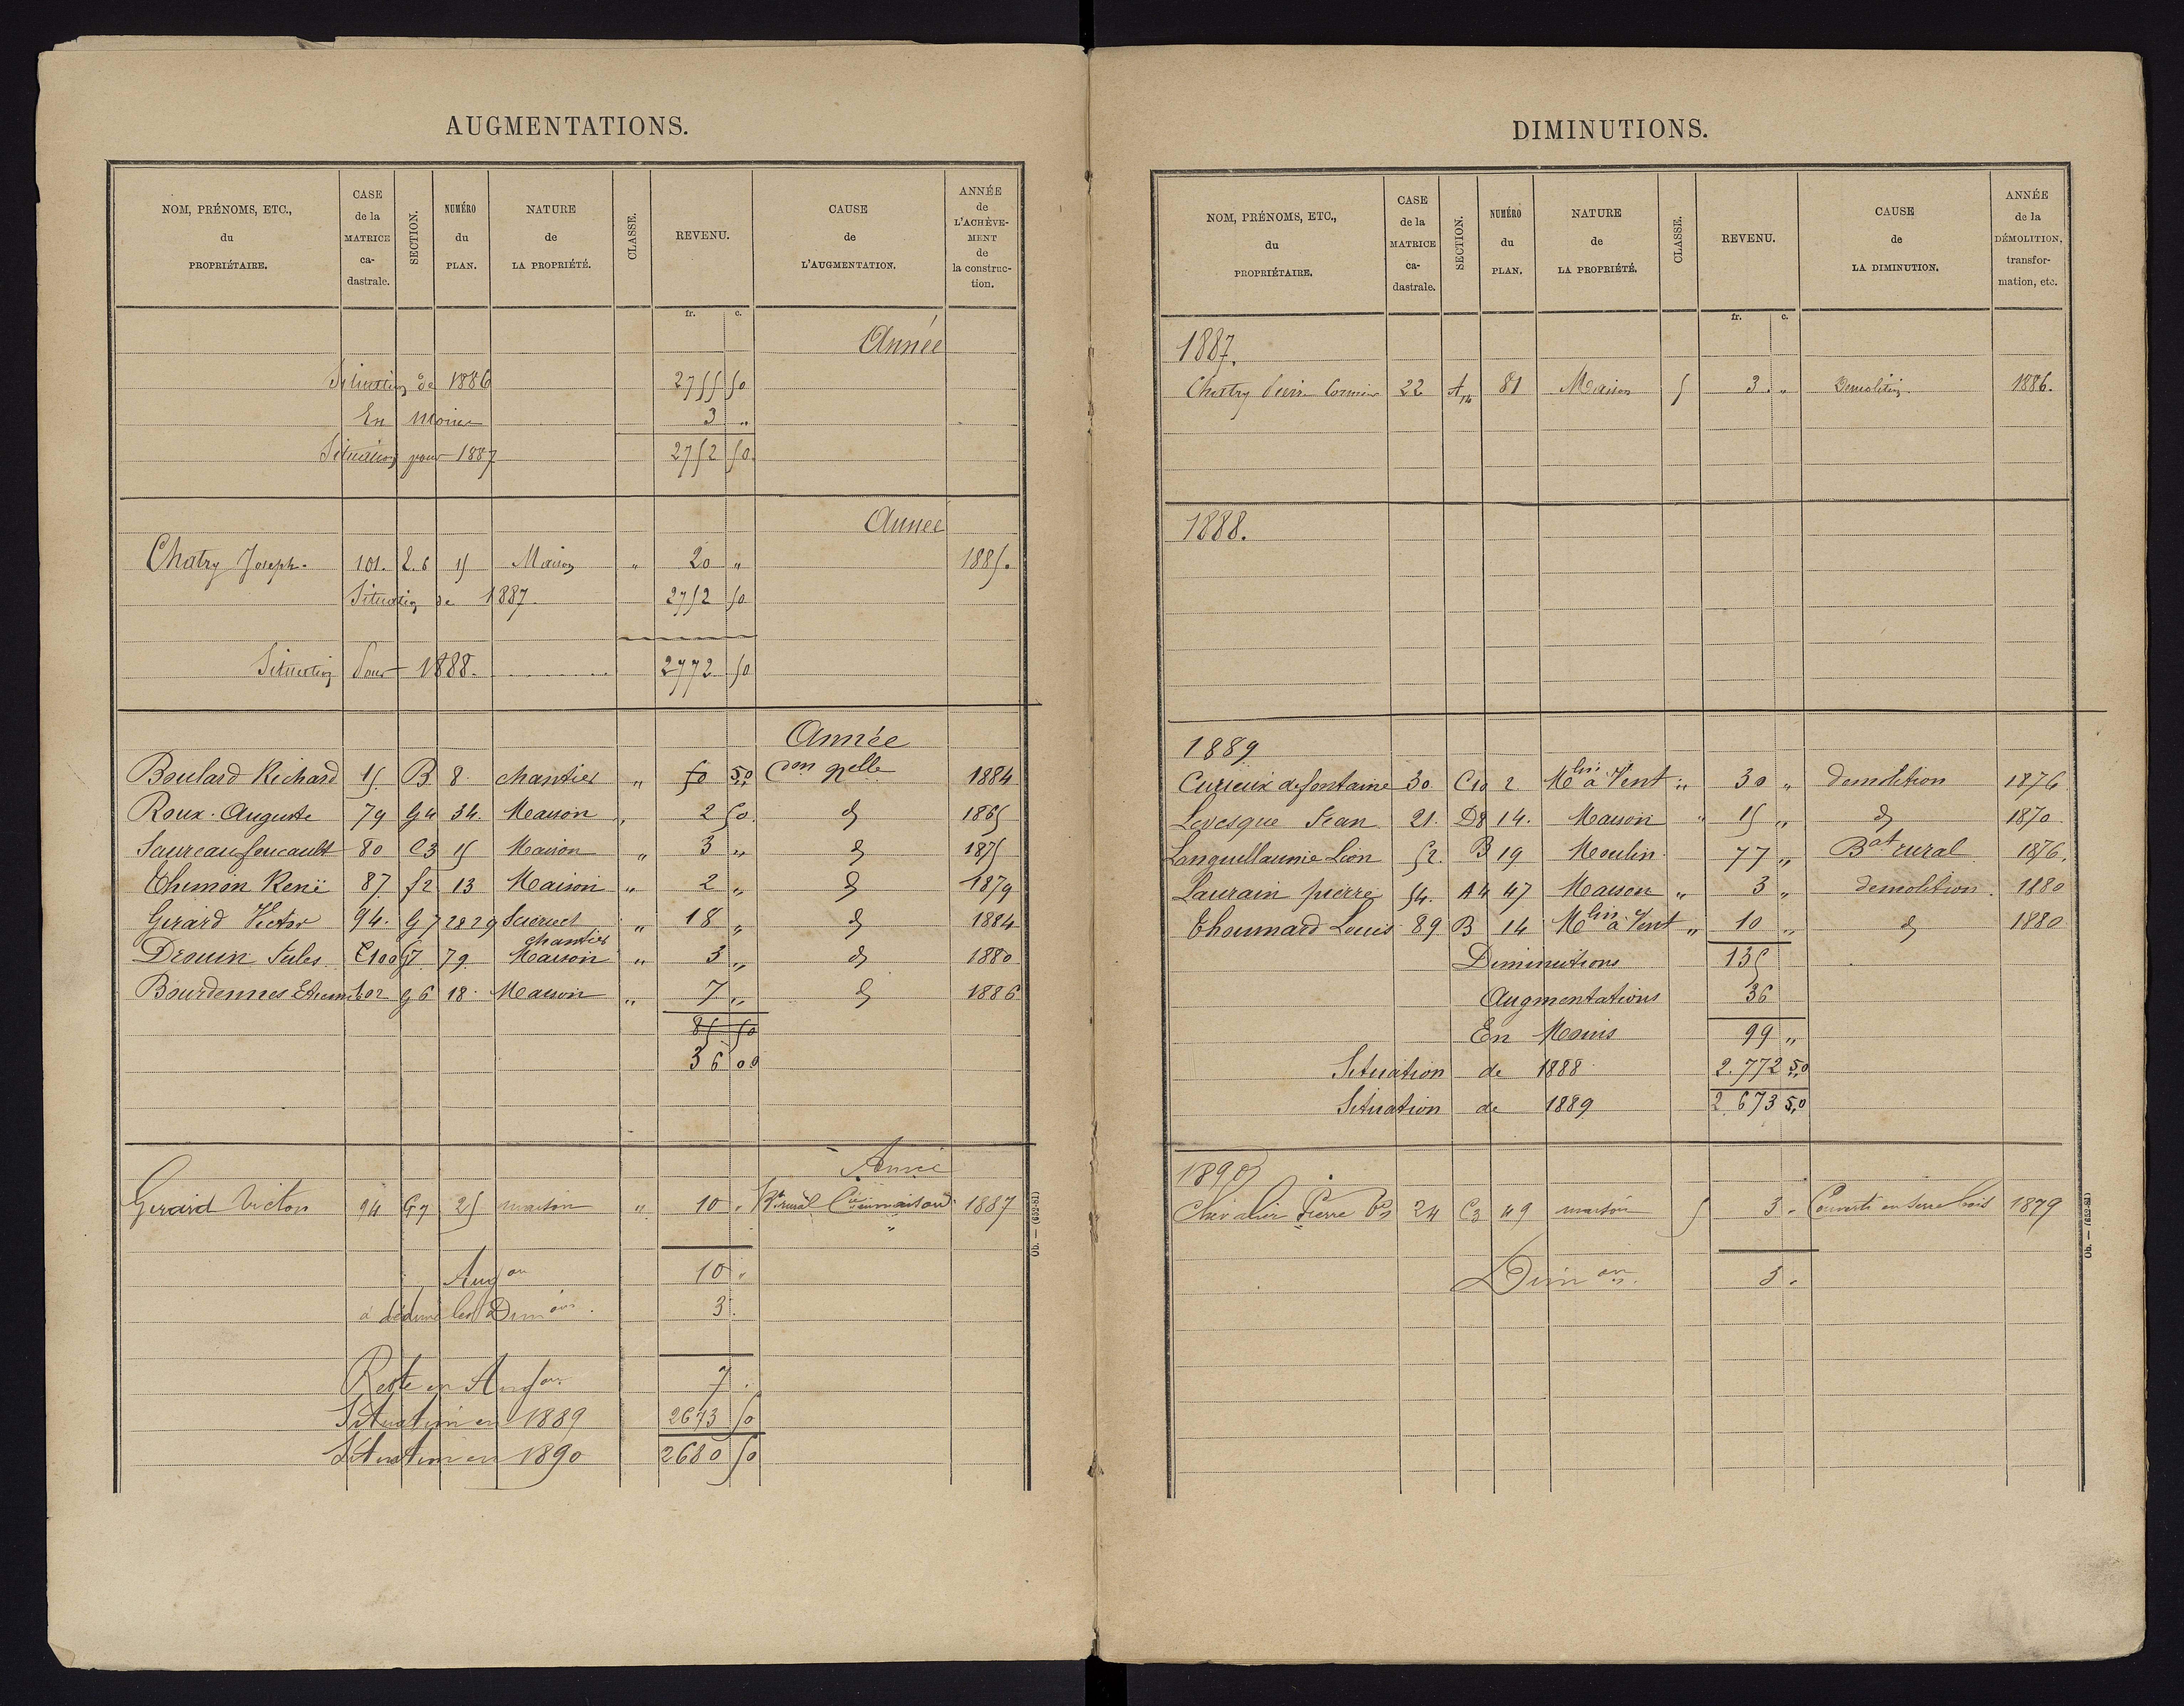 AUGMENTATIONS.
NOM, PRÉNOMS, ETC., du PROPRIÉTAIRE. CASE de la MATRICE ca-dastrale. SECTION. NUMÉRO du PLAN. NATURE de LA PROPRIÉTÉ. CLASSE. REVENU. CAUSE de L'AUGMENTATION. ANNÉE de L'ACHÈVE-MENT de la construc-tion.
fr. c.
Année
Situation de 1886 2755 50
En moins 3 "
Situation pour 1887 2752 50
Année
Chatry Joseph. 101. 2.6 15 Maison " 20 " 1885.
Situation de 1887 2752 50
Situation pour 1888. 2772 50
Année
Boulard Richard 15 B 8 chantier " 50 C.on nelle 1884
Roux Auguste 79 G4 34. Maison " 2 50 d 1865
80 C3 15 Maison " 3 " d 1875
Thimon René 87 f2 13 Maison " 2 " d 1879
Girard Victor 94. G7 28 29 " 18 " d 1884
chantier
Drouin Jules 100 G7 79 Maison " 3 " d 1880
Bourdennes 102 G6 18 Maison " 7 " d 1886
85 50
36 00
Année
Girard Victor 94 G7 25 maison " 10 " Bt rural C.ti en maison 1887
Aug on 10 "
à déduire les Dim ons. 3.
Reste en Aug on 7.
Situation en 1889 2673 50
Situation en 1890 2680 50
Ob. — (652-87)
DIMINUTIONS.
NOM, PRÉNOMS, ETC., du PROPRIÉTAIRE. CASE de la MATRICE ca-dastrale. SECTION. NUMÉRO du PLAN. NATURE de LA PROPRIÉTÉ. CLASSE. REVENU. CAUSE de LA DIMINUTION. ANNÉE de la DÉMOLITION, transfor-mation, etc.
fr. c.
1887.
Chatry 22 81 Maison 5 3 " Demolition 1886.
1888.
1889
Curieux defontaine 30 C10 2 M lin à Vent " 30 " demolition 1876
Levesque Jean 21. D8 14. Maison " 15 " d 1870
Languillaumie Léon 52. B 19 Moulin 77 " B at rural 1876.
Laurain pierre 54. A4 47 Maison " 3 " demolition 1880
Thoumard Louis 89 B 14 M lin à Vent " 10 " d 1880
Diminutions 135
Augmentations 36
En Moins 99 "
Situation de 1888 2.772 50
Situation de 1889 2.673 50
1890
Chevalier Pierre 24 C3 49 maison 5 3 " Converti en serre bois 1879
Dim on. 3 "
Ob. — (652-87)